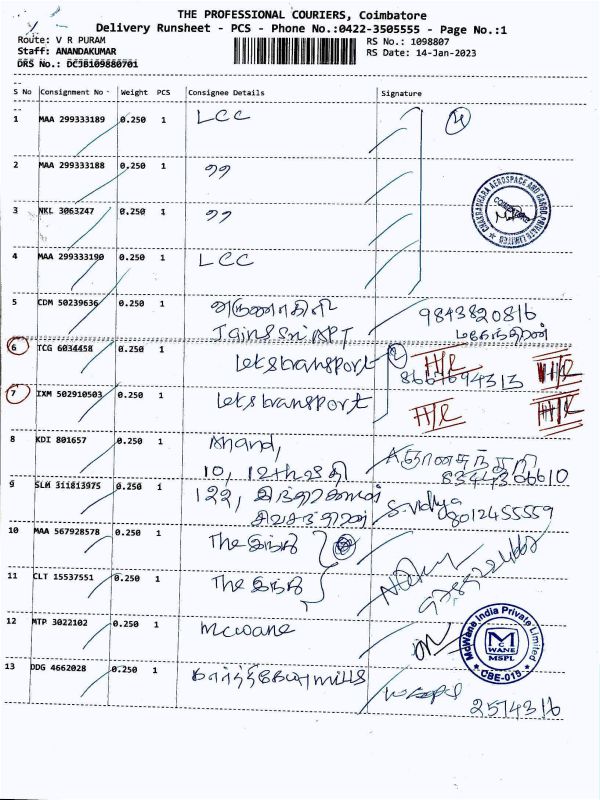 THE PROFESSIONAL COURIERS, Coimbatore
Delivery Runsheet - PCS - Phone No.:0422-3505555 - Page No.:1
Route: V R PURAM
RS No.: 1098807
Staff: ANANDAKUMAR
RS Date: 14-Jan-2023
DRS No.: DCJB109880701
S No Consignment No Weight PCS Consignee Details Signature
1 MAA 299333189 0.250 1 LCC 4
2 MAA 299333188 0.250 1 ,,
3 NKL 3063247 0.250 1 ,,
4 MAA 299333190 0.250 1 LCC
CHAKRADHARA AEROSPACE AND CARGO PRIVATE LIMITED
COIMBATORE
5 CDM 50239636 0.250 1 9843820816
Jain Sri APT
6 TCG 6034458 0.250 1 Letstransport 2 H/R H/R
7 IXM 502910503 0.250 1 Letstransport H/R H/R
8 KDI 801657 0.250 1 Anand,
10, 12th வீதி
9 SLM 311813975 0.250 1 122, S. Vidya
8012455559
10 MAA 567928578 0.250 1 The இந்து
11 CLT 15537551 0.250 1 The இந்து
12 MTP 3022102 0.250 1 mcwane
McWane India Private Limited
MC WANE
MSPL
CBE-018
13 DDG 4662028 0.250 1 mills
2574316